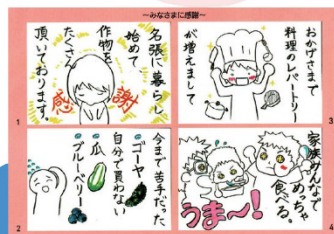 ～みなさまに感謝～
名張に暮らし
始めて
作物を
たくさん
頂いております。
感謝
1
今まで苦手だった
ゴーヤ
自分で買わない
瓜
ブルーベリー
2
おかげさまで
料理のレパートリー
が増えまして
3
家族みんなで
めっちゃ
食べる。
うま～!
4